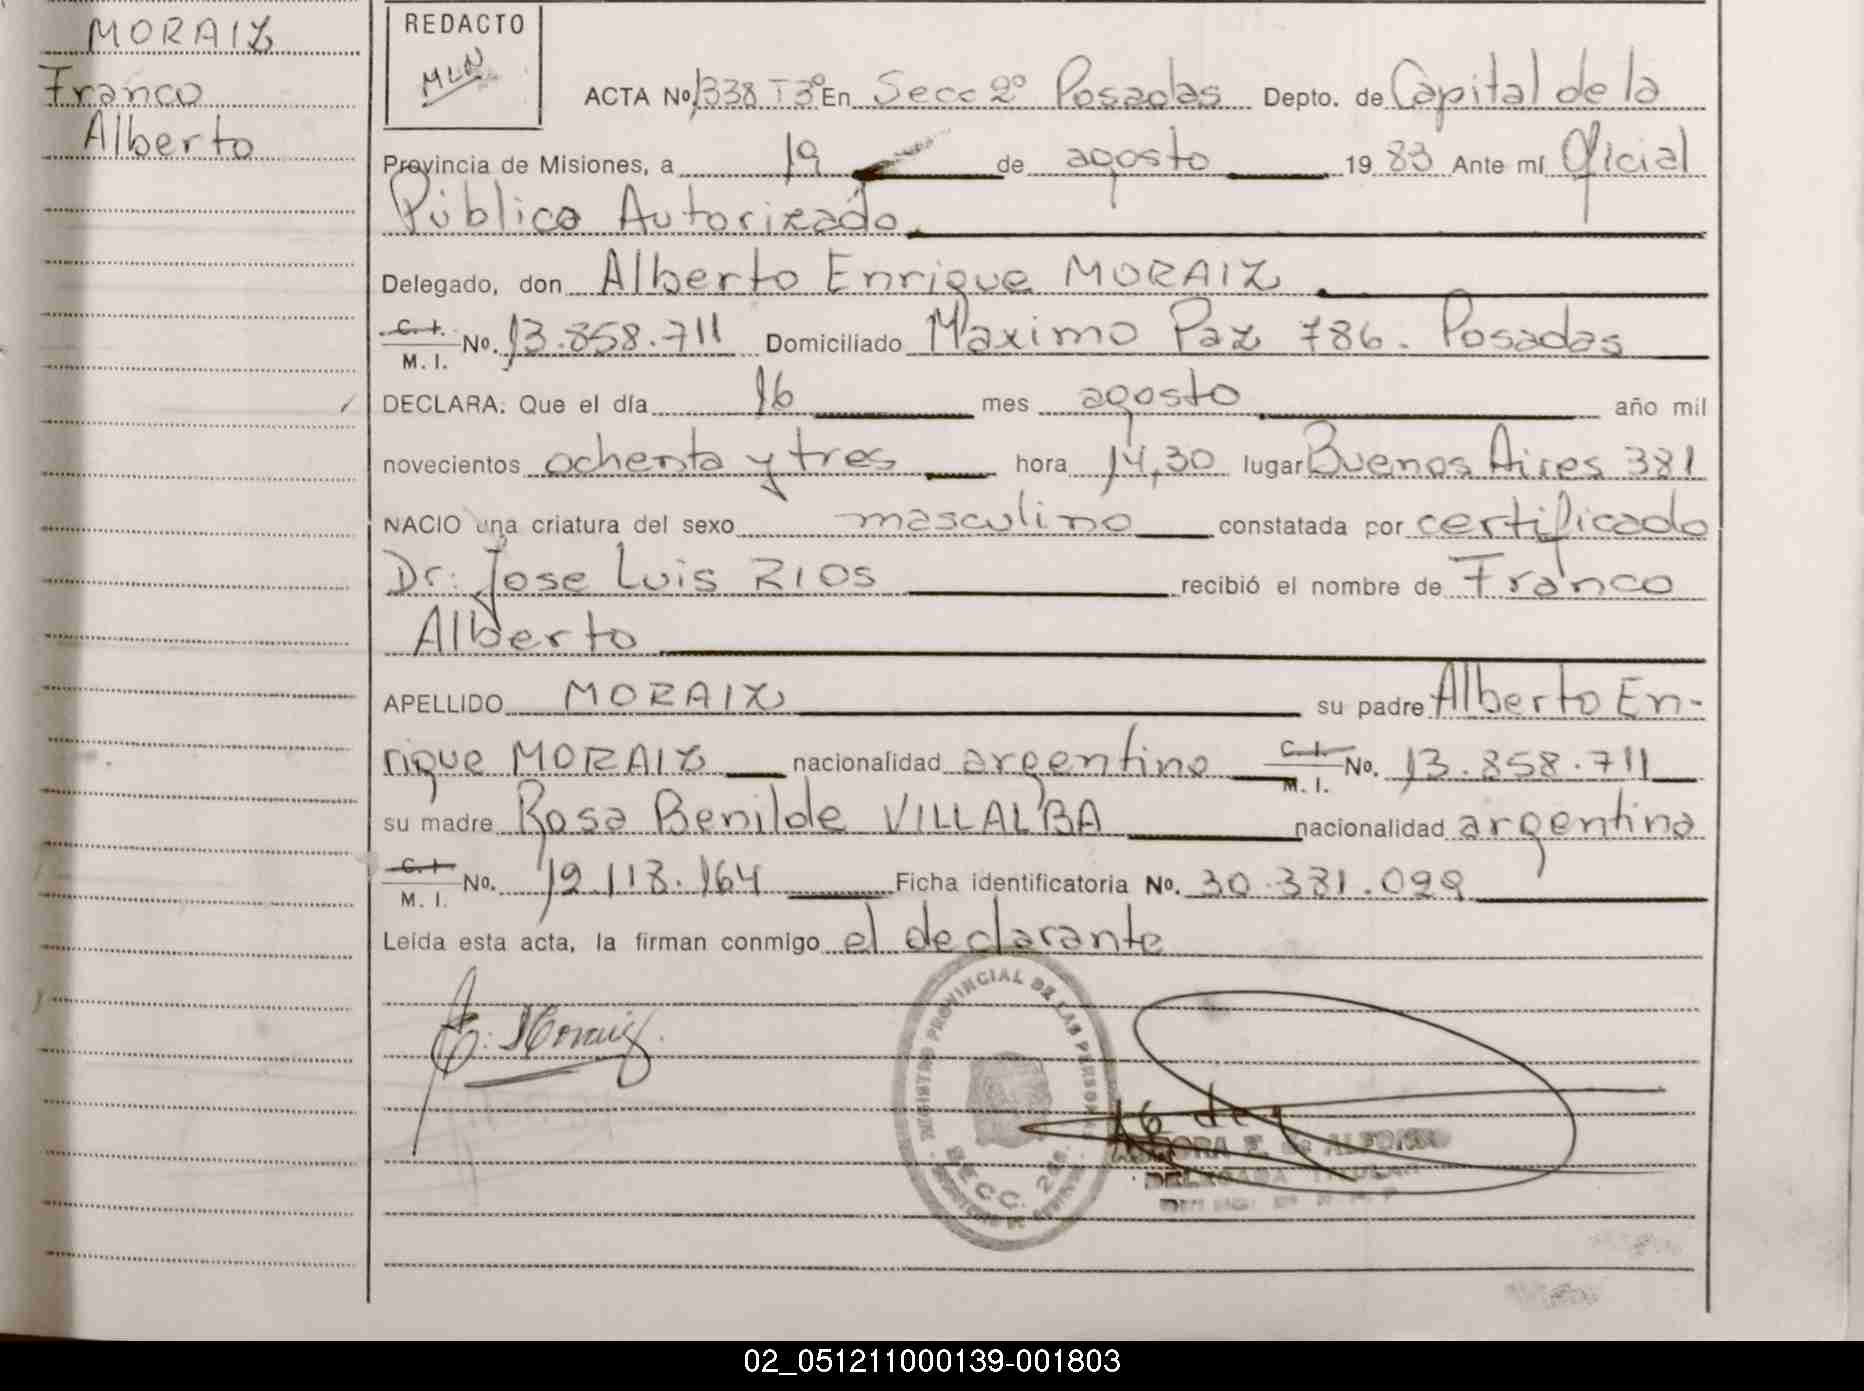 MORAIZ
Franco
Alberto
REDACTO
MLN
ACTA Nº 1338 T3º En Secc 2º Posadas Depto. de Capital de la
Provincia de Misiones, a 19 de agosto 1983 Ante mí Oficial
Público Autorizado
Delegado, don Alberto Enrique MORAIZ
C. I. M. I. No. 13.858.711 Domiciliado Maximo Paz 786. Posadas
DECLARA: Que el día 16 mes agosto año mil
novecientos ochenta y tres hora 14,30 lugar Buenos Aires 381
NACIO una criatura del sexo masculino constatada por certificado
Dr. Jose Luis RIOS recibió el nombre de Franco
Alberto
APELLIDO MORAIZ su padre Alberto En-
rique MORAIZ nacionalidad argentino C. I. M. I. No. 13.858.711
su madre Rosa Benilde VILLALBA nacionalidad argentina
C. I. M. I. No. 12.118.164 Ficha identificatoria No. 30.381.099
Leída esta acta, la firman conmigo el declarante
REGISTRO PROVINCIAL DE LAS PERSONAS
SECC. 2da.
DELEGADA TITULAR
02_051211000139-001803